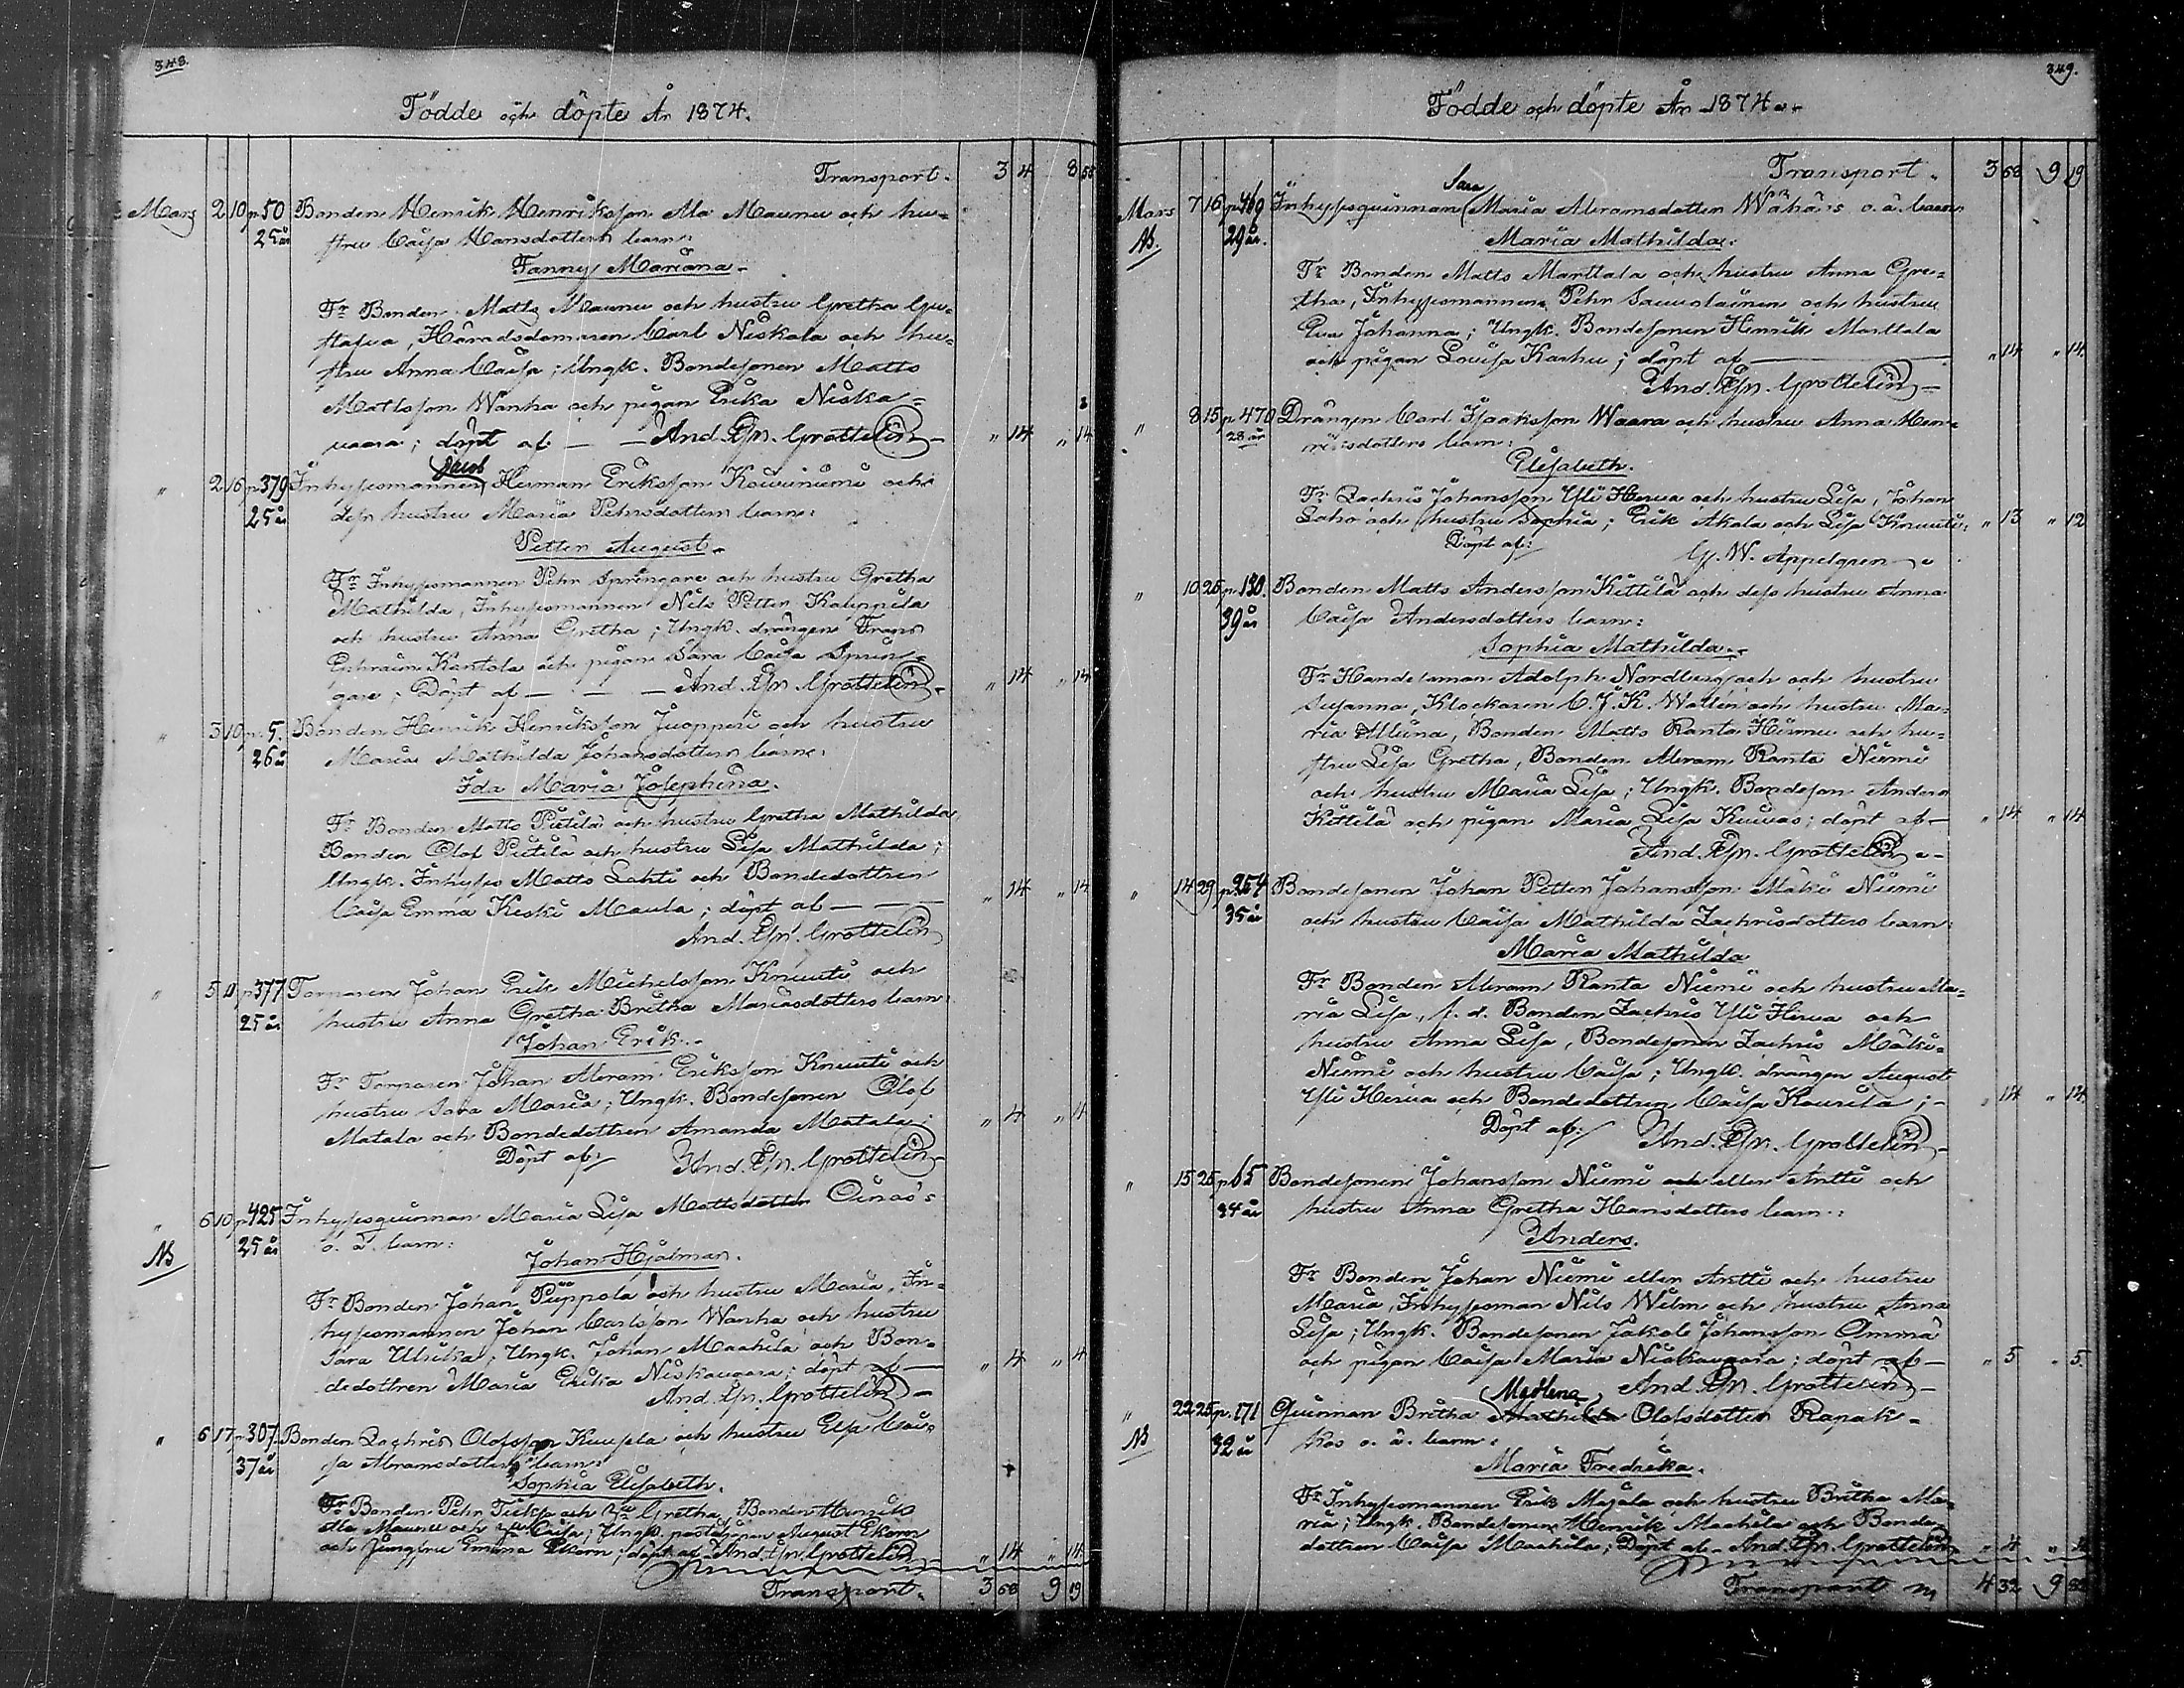 348.
Födde och döpte År 1874.
Transport. 3 4 8 55
Mars 2 10 p. 50 Bonden Henrik Henriksson Ala Maunu och hu-
25 år stru Caisa Hansdotters barn:
Fanny Mariana.
Fr. Bonden Matts Maunu och hustru Gretha Gu-
stafva, Häradsdomaren Carl Niskala och hu-
stru Anna Caisa; Ungk. Bondesonen Matts
Mattsson Wanha och pigan Erika Niska-
vaara; döpt af — — And. Joh. Grottelin " 14 " 14
Jacob
" 2 16 p. 379 Inhysesmannen Herman Eriksson Koivuniemi och
25 år dess hustru Maria Pehrsdotters barn:
Petter August.
Fr. Inhysesmannen Pehr Springare och hustru Gretha
Mathilda, Inhysesmannen Nils Petter Kauppila
och hustru Anna Gretha; Ungk. drängen Frans
Ephraim Kantola och pigan Sara Caisa Sprin-
gare; Döpt af — — — And. Joh. Grottelin " 14 " 14
" 3 10 p. 5. Bonden Henrik Henriksson Juopperi och hustru
26 år Maria Mathilda Johansdotters barn:
Ida Maria Josephina.
Fr. Bonden Matts Pietilä och hustru Gretha Mathilda
Bonden Olof Pietilä och hustru Lisa Mathilda;
Ungk. Inhyses Matts Lahti och Bondedottren
Caisa Emma Keski Maula; döpt af — — " 14 " 14
And. Joh. Grottelin
" 5 11 p. 377 Torparen Johan Erik Michelsson Knuuti och
25 år hustru Anna Gretha Britha Mariasdotters barn:
Johan Erik.
Fr. Torparen Johan Abram Eriksson Knuuti och
hustru Sara Maria; Ungk. Bondesonen Olof
Matala och Bondedottren Amanda Matala " 4 " 4
Döpt af: And. Joh. Grottelin
" 6 10 p. 425 Inhysesquinnan Maria Lisa Mattsdotter Oinas's
NB 25 år o. ä. barn:
Johan Hjalmar.
Fr. Bonden Johan Piippola och hustru Maria, In-
hysesmannen Johan Carlsson Wanha och hustru
Sara Ulrika; Ungk. Johan Maahila och Bon-
dedottren Maria Erika Niskavaara; döpt af — " 4 " 4
And. Joh. Grottelin
" 6 17 p. 307. Bonden Zachris Olofsson Kuusela och hustru Elsa Cai-
37 år sa Abramsdotters barn:
Sophia Elisabeth.
Fr. Bonden Pehr och hu Gretha, Bonden Henrik
Ala Maunu och hu Caisa; Ungk. August Ekorn
och Jungfru Emma Ekorn; döpt af And. Joh. Grottelin " 14 " 14
Transport. 3 68 9 19
349.
Födde och döpte År 1874.
Transport. 3 68 9 19
Sara
Mars 7 16 p. 469 Inhysesquinnan Maria Abramsdotter Wähä's o. ä. barn
NB. 29 år. Maria Mathilda.
Fr. Bonden Matts Marttala och hustru Anna Gre-
tha, Inhysesmannen Pehr Sauvolainen och hustru
Eva Johanna; Ungk. Bondesonen Henrik Marttala
och pigan Lovisa Karhu; döpt af — " 14 " 14
And. Joh. Grottelin
" 8 15 p. 470 Drängen Carl Isaksson Waara och hustru Anna Hen-
28 år riksdotters barn:
Elisabeth.
Fr. Zachris Johansson Yli Herva och hustru Lisa, Johan
Laho och hustru Sophia; Erik Akala och Lisa Knuuti: " 13 " 12
Döpt af: G. W. Appelgren
" 10 26 p. 130. Bonden Matts Andersson Kittilä och dess hustru Anna
39 år Caisa Andersdotters barn:
Sophia Mathilda.
Fr. Handelsman Adolph Nordberg och och hustru
Susanna, Klockaren C. J. K. Wallin och hustru Ma-
ria Allina, Bonden Matts Ranta Hirmu och hu-
stru Lisa Gretha, Bonden Abram Ranta Niemi
och hustru Maria Lisa; Ungk. Bondeson Anders
Kittilä och pigan Maria Lisa Kuivas; döpt af — " 14 " 14
And. Joh. Grottelin
" 14 29 p. 254 Bondesonen Johan Petter Johansson Mäki Niemi
35 år och hustru Caisa Mathilda Zachrisdotters barn:
Maria Mathilda
Fr. Bonden Abram Ranta Niemi och hustru Ma-
ria Lisa, f. d. Bonden Zachris Yli Herva och
hustru Anna Lisa, Bondesonen Zachris Mäki-
Niemi och hustru Caisa; Ungk. drängen August
Yli Herva och Bondedottren Caisa Kourila; " 14 " 14
Döpt af: And. Joh. Grottelin
" 15 26 p. 65 Bondesonen Johansson Niemi och eller Antti och
34 år hustru Anna Gretha Hansdotters barn:
Anders.
Fr. Bonden Johan Niemi eller Antti och hustru
Maria, Inhysesman Nils Wilm och hustru Anna
Lisa; Ungk. Bondesonen Jakob Johansson Ämmä
och pigan Caisa Maria Niskavaara; döpt af — " 5 " 5
And. Joh. Grottelin
Madlena
" 22 25 p. 171 Quinnan Britha Mathilda Olofsdotter Rapak-
NB 32 år kos o. ä. barn:
Maria Fredrika.
Fr. Inhysesmannen Erik Majala och hustru Britha Ma-
ria; Ungk. Bondesonen Henrik Maahila och Bonde-
dottren Caisa Maahila; Döpt af And. Joh. Grottelin " 4 "
Transport 4 32 9